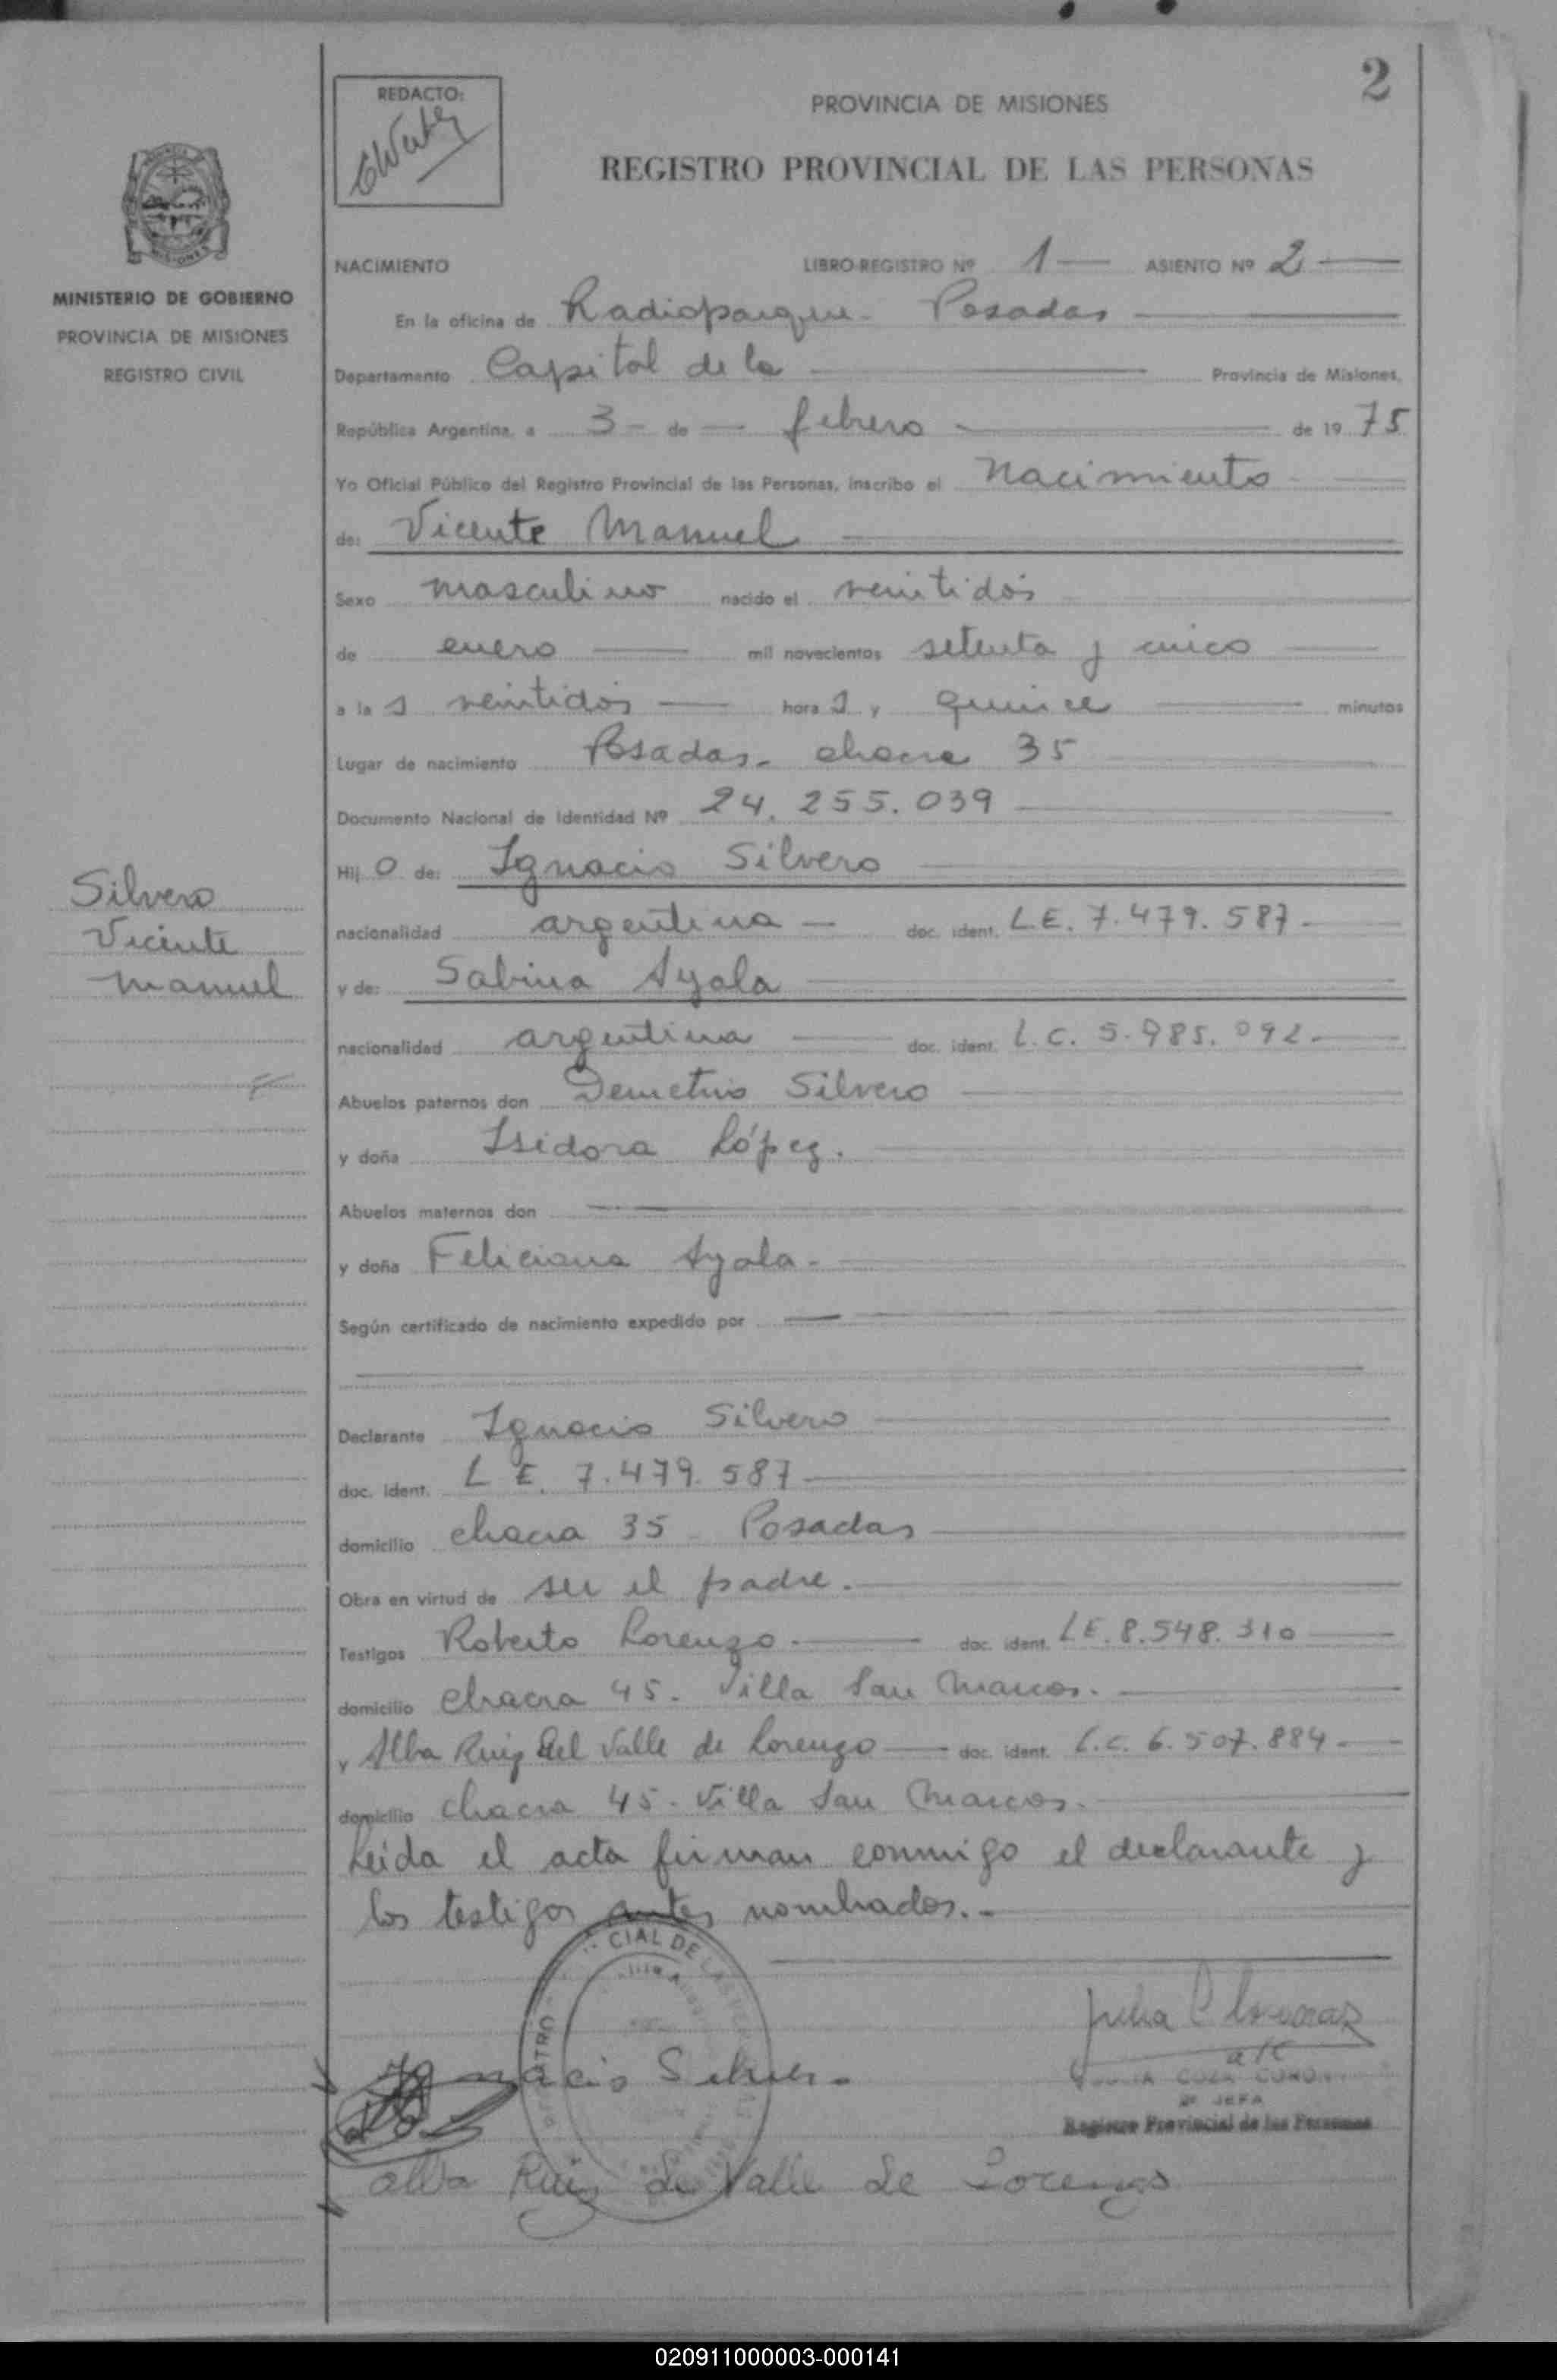 2
REDACTO:
PROVINCIA DE MISIONES
REGISTRO PROVINCIAL DE LAS PERSONAS
MISIONES
MINISTERIO DE GOBIERNO
PROVINCIA DE MISIONES
REGISTRO CIVIL
NACIMIENTO LIBRO-REGISTRO Nº 1 ASIENTO Nº 2
En la oficina de Radioparque - Posadas
Departamento Capital de la Provincia de Misiones,
República Argentina, a 3 - de febrero de 1975
Yo Oficial Público del Registro Provincial de las Personas, inscribo el Nacimiento
de: Vicente Manuel
Sexo masculino nacido el veintidós
de enero mil novecientos setenta y cinco
a las veintidós horas y quince minutos
Lugar de nacimiento Posadas - chacra 35
Documento Nacional de Identidad Nº 24.255.039
Hijo de: Ignacio Silvero
Silvero
Vicente
Manuel
nacionalidad argentina - doc. ident. L.E. 7.479.587 -
y de: Sabina Ayala
nacionalidad argentina doc. ident. L.C. 5.985.092 -
Abuelos paternos don Demetrio Silvero
y doña Isidora López.
Abuelos maternos don
y doña Feliciana Ayala -
Según certificado de nacimiento expedido por
Declarante Ignacio Silvero
doc. ident. L E. 7.479.587
domicilio chacra 35 - Posadas
Obra en virtud de ser el padre.
Testigos Roberto Lorenzo. doc. ident. L E. 8.548.310
domicilio chacra 45. Villa San Marcos.
y Alba Ruiz del Valle de Lorenzo doc. ident. L.C. 6.507.884
domicilio chacra 45 - Villa San Marcos.
Leida el acta firman conmigo el declarante y
los testigos antes nombrados. -
CIAL DE LAS
Ignacio
Registro Provincial de las Personas
alba Ruiz de Valle de Lorenzo
020911000003-000141